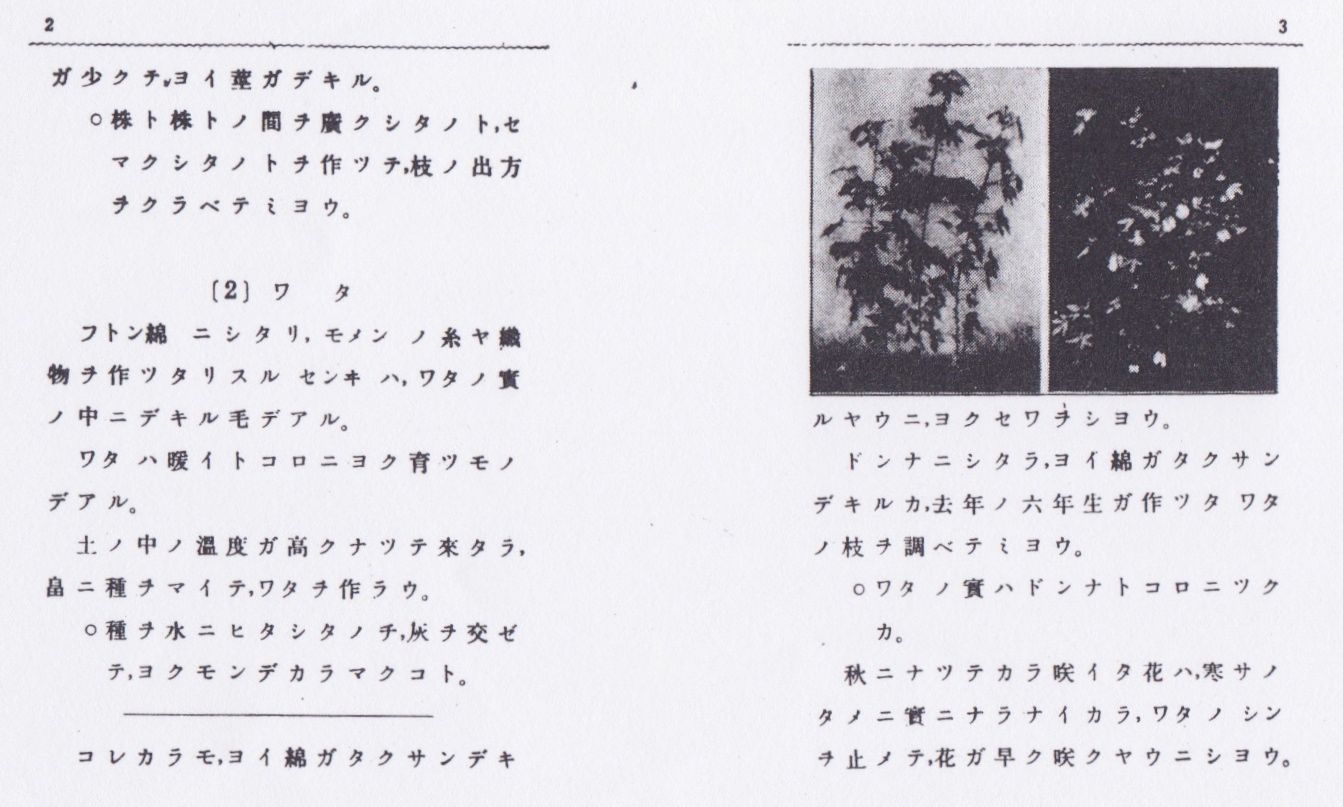 2
ガ少クテ,ヨイ莖ガデキル。
○株ト株トノ間ヲ廣クシタノト,セ
マクシタノトヲ作ツテ,枝ノ出方
ヲクラベテミヨウ。
〔2〕 ワ タ
フトン綿 ニシタリ, モメン ノ糸ヤ織
物ヲ作ツタリスル センヰ ハ, ワタノ實
ノ中ニデキル毛デアル。
ワタ ハ暖イトコロニヨク育ツモノ
デアル。
土ノ中ノ溫度ガ高クナツテ來タラ,
畠ニ種ヲマイテ,ワタヲ作ラウ。
○種ヲ水ニヒタシタノチ,灰ヲ交ゼ
テ,ヨクモンデカラマクコト。
コレカラモ,ヨイ綿ガタクサンデキ
3
ルヤウニ,ヨクセワヲシヨウ。
ドンナニシタラ,ヨイ綿ガタクサン
デキルカ,去年ノ六年生ガ作ツタ ワタ
ノ枝ヲ調ベテミヨウ。
○ワタ ノ實ハドンナトコロニツク
カ。
秋ニナツテカラ咲イタ花ハ,寒サノ
タメニ實ニナラナイカラ, ワタノ シン
ヲ止メテ,花ガ早ク咲クヤウニシヨウ。